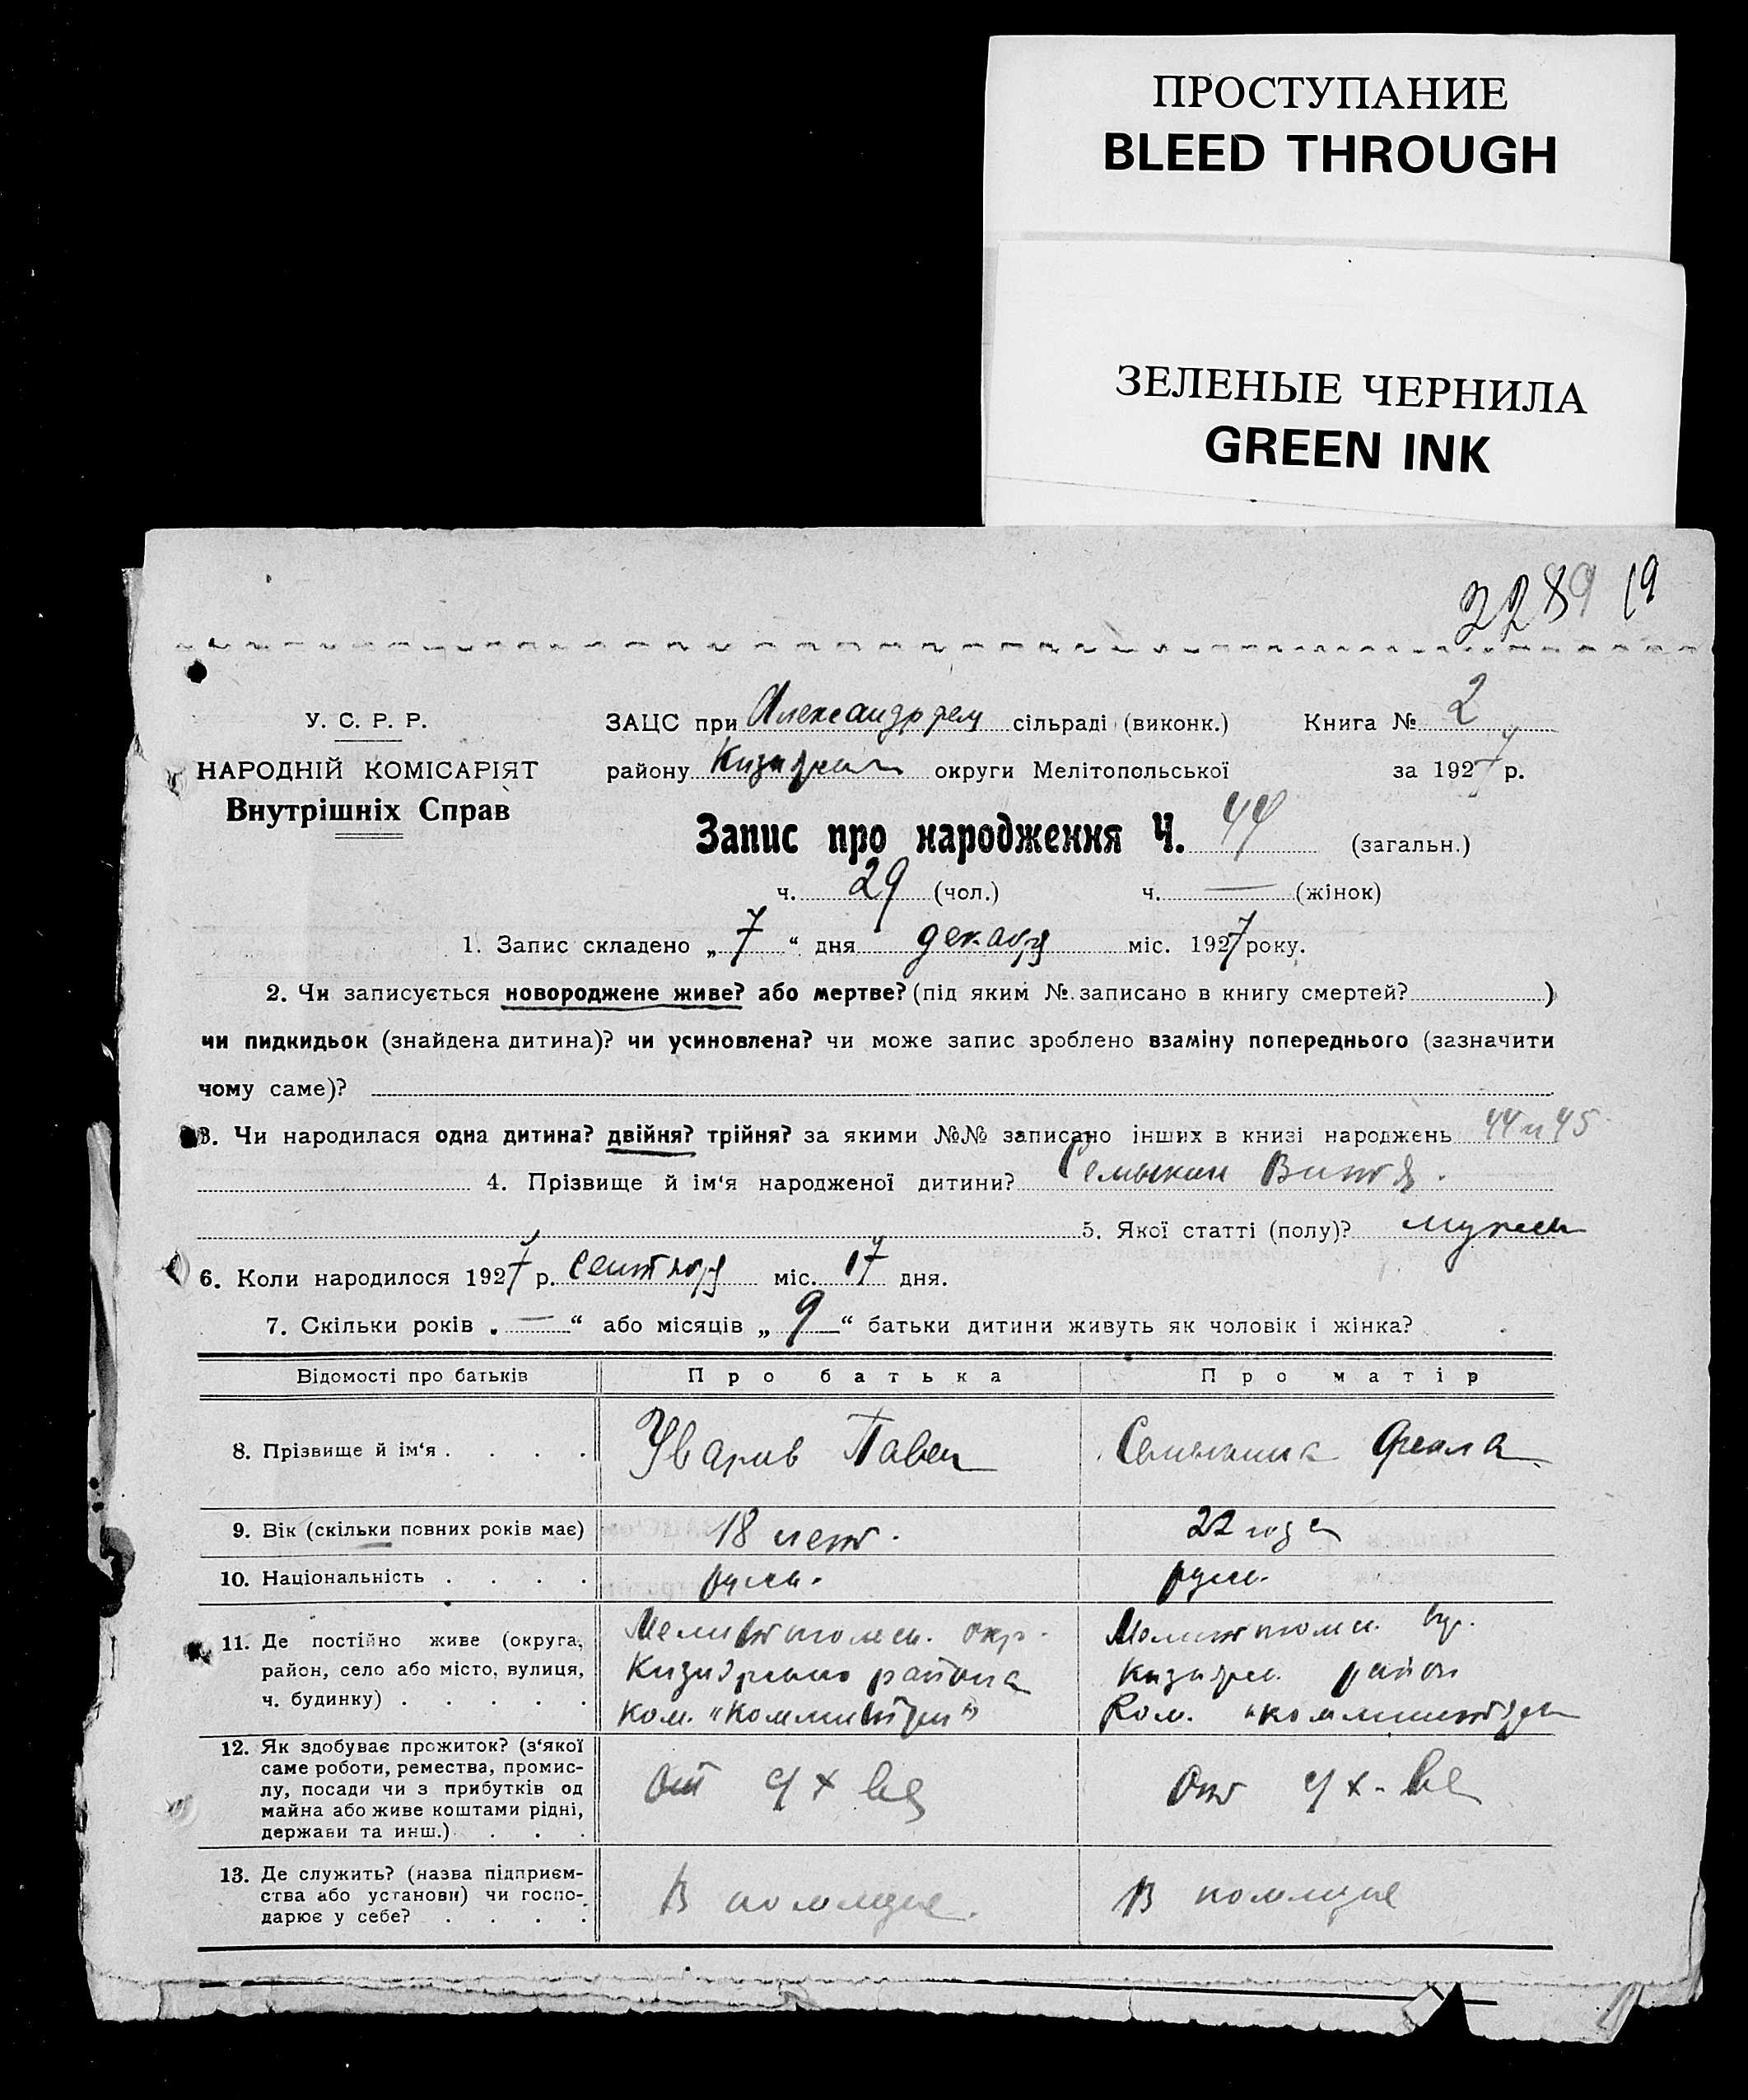 ПРОСТУПАНИЕ
BLEED THROUGH
ЗЕЛЕНЫЕ ЧЕРНИЛА
GREEN INK
2289 19
У. С. Р. Р.
НАРОДНІЙ КОМІСАРІЯТ
Внутрішніх Справ
ЗАЦС при сільраді (виконк.) Книга № 2
району округи Мелітопольської за 1927 р.
Запис про народження Ч. 44 (загальн.)
ч. 29 (чол.) ч. — (жінок)
1. Запис складено „7“ дня декабря міс. 1927 року.
2. Чи записується новороджене живе? або мертве? (під яким №. записано в книгу смертей? )
чи пидкидьок (знайдена дитина)? чи усиновлена? чи може запис зроблено взаміну попереднього (зазначити
чому саме)?
3. Чи народилася одна дитина? двійня? трійня? за якими №№ записано інших в книзі народжень 44 и 45
4. Прізвище й ім‘я народженої дитини? Семыкин Витя.
5. Якої статті (полу)? мужск
6. Коли народилося 1927 р. сентября міс. 17 дня.
7. Скільки років „—“ або місяців „9“ батьки дитини живуть як чоловік і жінка?
Відомості про батьків Про батька Про матір
8. Прізвище й ім‘я . . . . Уваров Павел Семыкина
9. Вік (скільки повних років має) 18 лет. 22 года
10. Національність . . . . русск. русск.
11. Де постійно живе (округа,
район, село або місто, вулиця,
ч. будинку) . . . . .
Мелитопольск. окр.
района
Ком. "Коминтерн"
Мелитопольск. окр.
район
Ком. "коминтерн
12. Як здобуває прожиток? (з‘якої
саме роботи, ремества, промис-
лу, посади чи з прибутків од
майна або живе коштами рідні,
держави та инш.) . . .
От с/х-ва
От с/х-ва
13. Де служить? (назва підприєм-
ства або установи) чи госпо-
дарює у себе? . . . .
В коммуне.
В коммуне